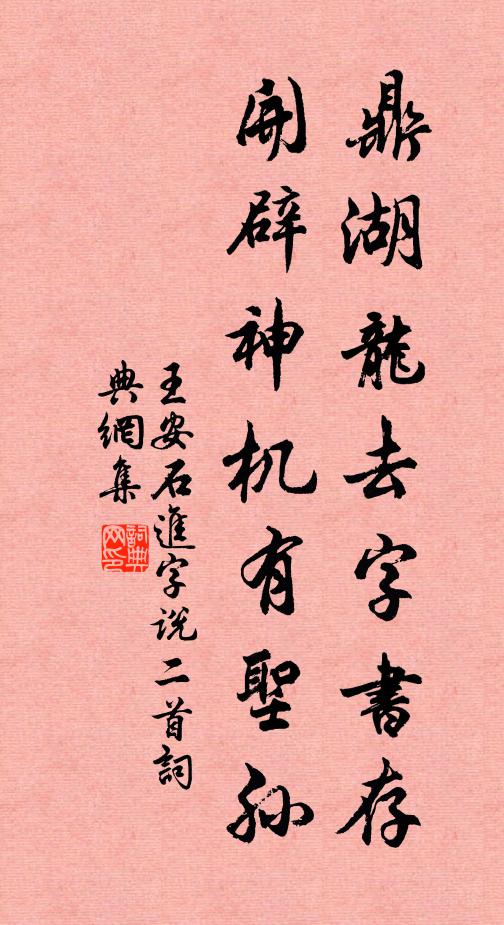 鼎湖龍去字書存
開辟神机有聖孫
王安石進字说二首詞
典網集
詞典
网印